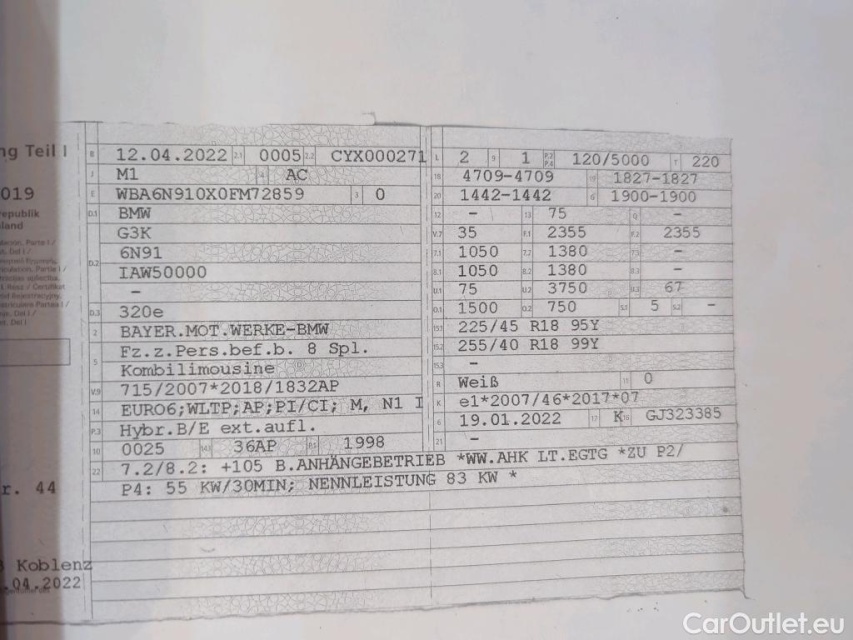 ng Teil I
B 12.04.2022 2.1 0005 2.2 CYX000271 L 2 9 1 P.2 P.4 120/5000 T 220
J M1 4 AC 18 4709-4709 19 1827-1827
019
E WBA6N910X0FM72859 3 0 20 1442-1442 G 1900-1900
republik
land
D.1 BMW 12 - 13 75 Q -
G3K V.7 35 F.1 2355 F.2 2355
D.2 6N91 7.1 1050 7.2 1380 7.3 -
IAW50000 8.1 1050 8.2 1380 8.3 -
- U.1 75 U.2 3750 U.3 67
D.3 320e O.1 1500 O.2 750 S.1 5 S.2 -
2 BAYER.MOT.WERKE-BMW 15.1 225/45 R18 95Y
5 Fz.z.Pers.bef.b. 8 Spl. 15.2 255/40 R18 99Y
Kombilimousine 15.3 -
V.9 715/2007*2018/1832AP R Weiß 11 0
14 EURO6;WLTP;AP;PI/CI; M, N1 I K e1*2007/46*2017*07
P.3 Hybr.B/E ext.aufl. 6 19.01.2022 17 K 16 GJ323385
10 0025 14.1 36AP P.1 1998 21 -
22 7.2/8.2: +105 B.ANHÄNGEBETRIEB *WW.AHK LT.EGTG *ZU P2/
r. 44
P4: 55 KW/30MIN; NENNLEISTUNG 83 KW *
Koblenz
.04.2022
CarOutlet.eu